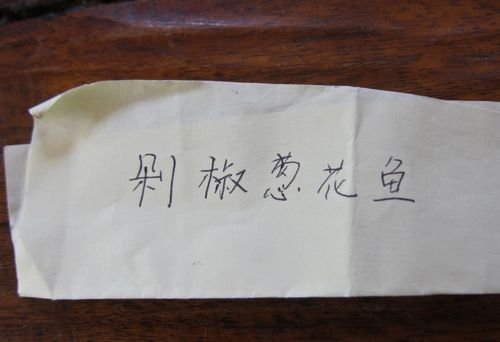 剁椒葱花鱼